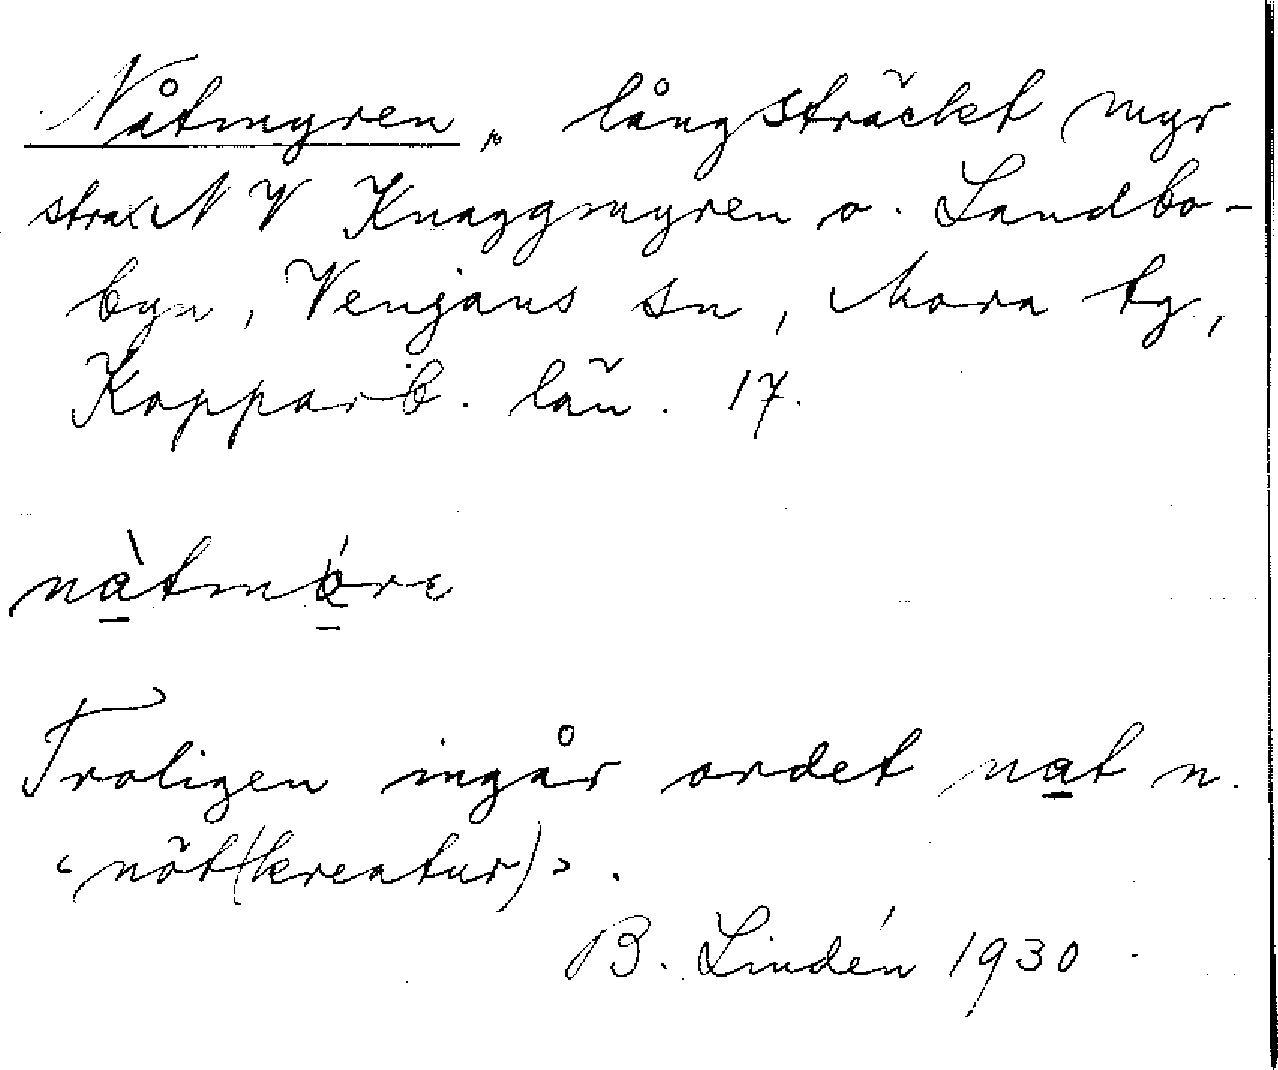 Nåtmyren, långsträckt myr
strax NV Knaggmyren o. Landbo-
byn, Venjans sn, Mora tg,
Kopparb. län. 17.
nàtmýrɛ
Troligen ingår ordet nat n.
‹nöt(kreatur)›.
B. Lindén 1930